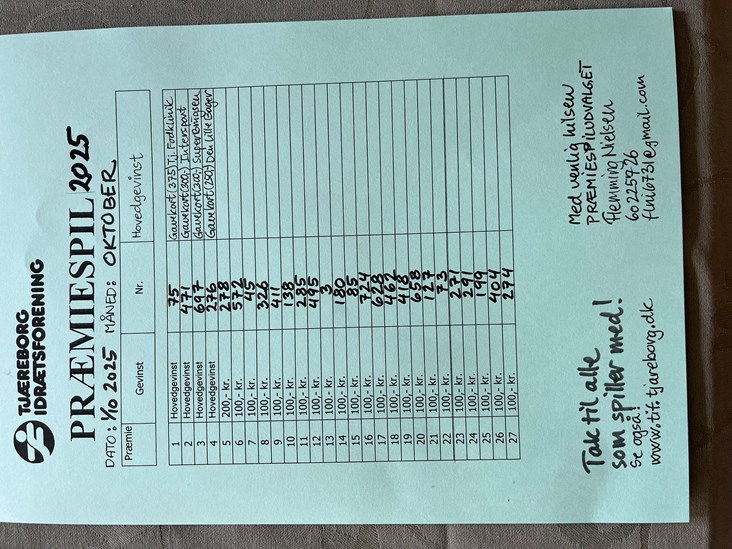 TJÆREBORG
IDRÆTSFORENING
PRÆMIESPIL 2025
DATO: 1/10 2025 MÅNED: OKTOBER
Præmie Gevinst Nr. Hovedgevinst
1 Hovedgevinst 75 Gavekort (375) Tj. Fodklinik
2 Hovedgevinst 471 Gavekort (300,-) Intersport
3 Hovedgevinst 697 Gavekort (300,-) SuperBrugsen
4 Hovedgevinst 276 Gavekort (250) Den lille Bager
5 200,- kr. 278
6 100,- kr. 572
7 100,- kr. 45
8 100,- kr. 326
9 100,- kr. 411
10 100,- kr. 138
11 100,- kr. 285
12 100,- kr. 495
13 100,- kr. 3
14 100,- kr. 180
15 100,- kr. 85
16 100,- kr. 724
17 100,- kr. 628
18 100,- kr. 462
19 100,- kr. 418
20 100,- kr. 658
21 100,- kr. 127
22 100,- kr. 73
23 100,- kr. 271
24 100,- kr. 291
25 100,- kr. 199
26 100,- kr. 404
27 100,- kr. 274
Tak til alle
som spiller med!
Se også!
www.tif.tjareborg.dk
Med venlig hilsen
PRÆMIESPILUDVALGET
Flemming Nielsen
60225726
flni6731@gmail.com